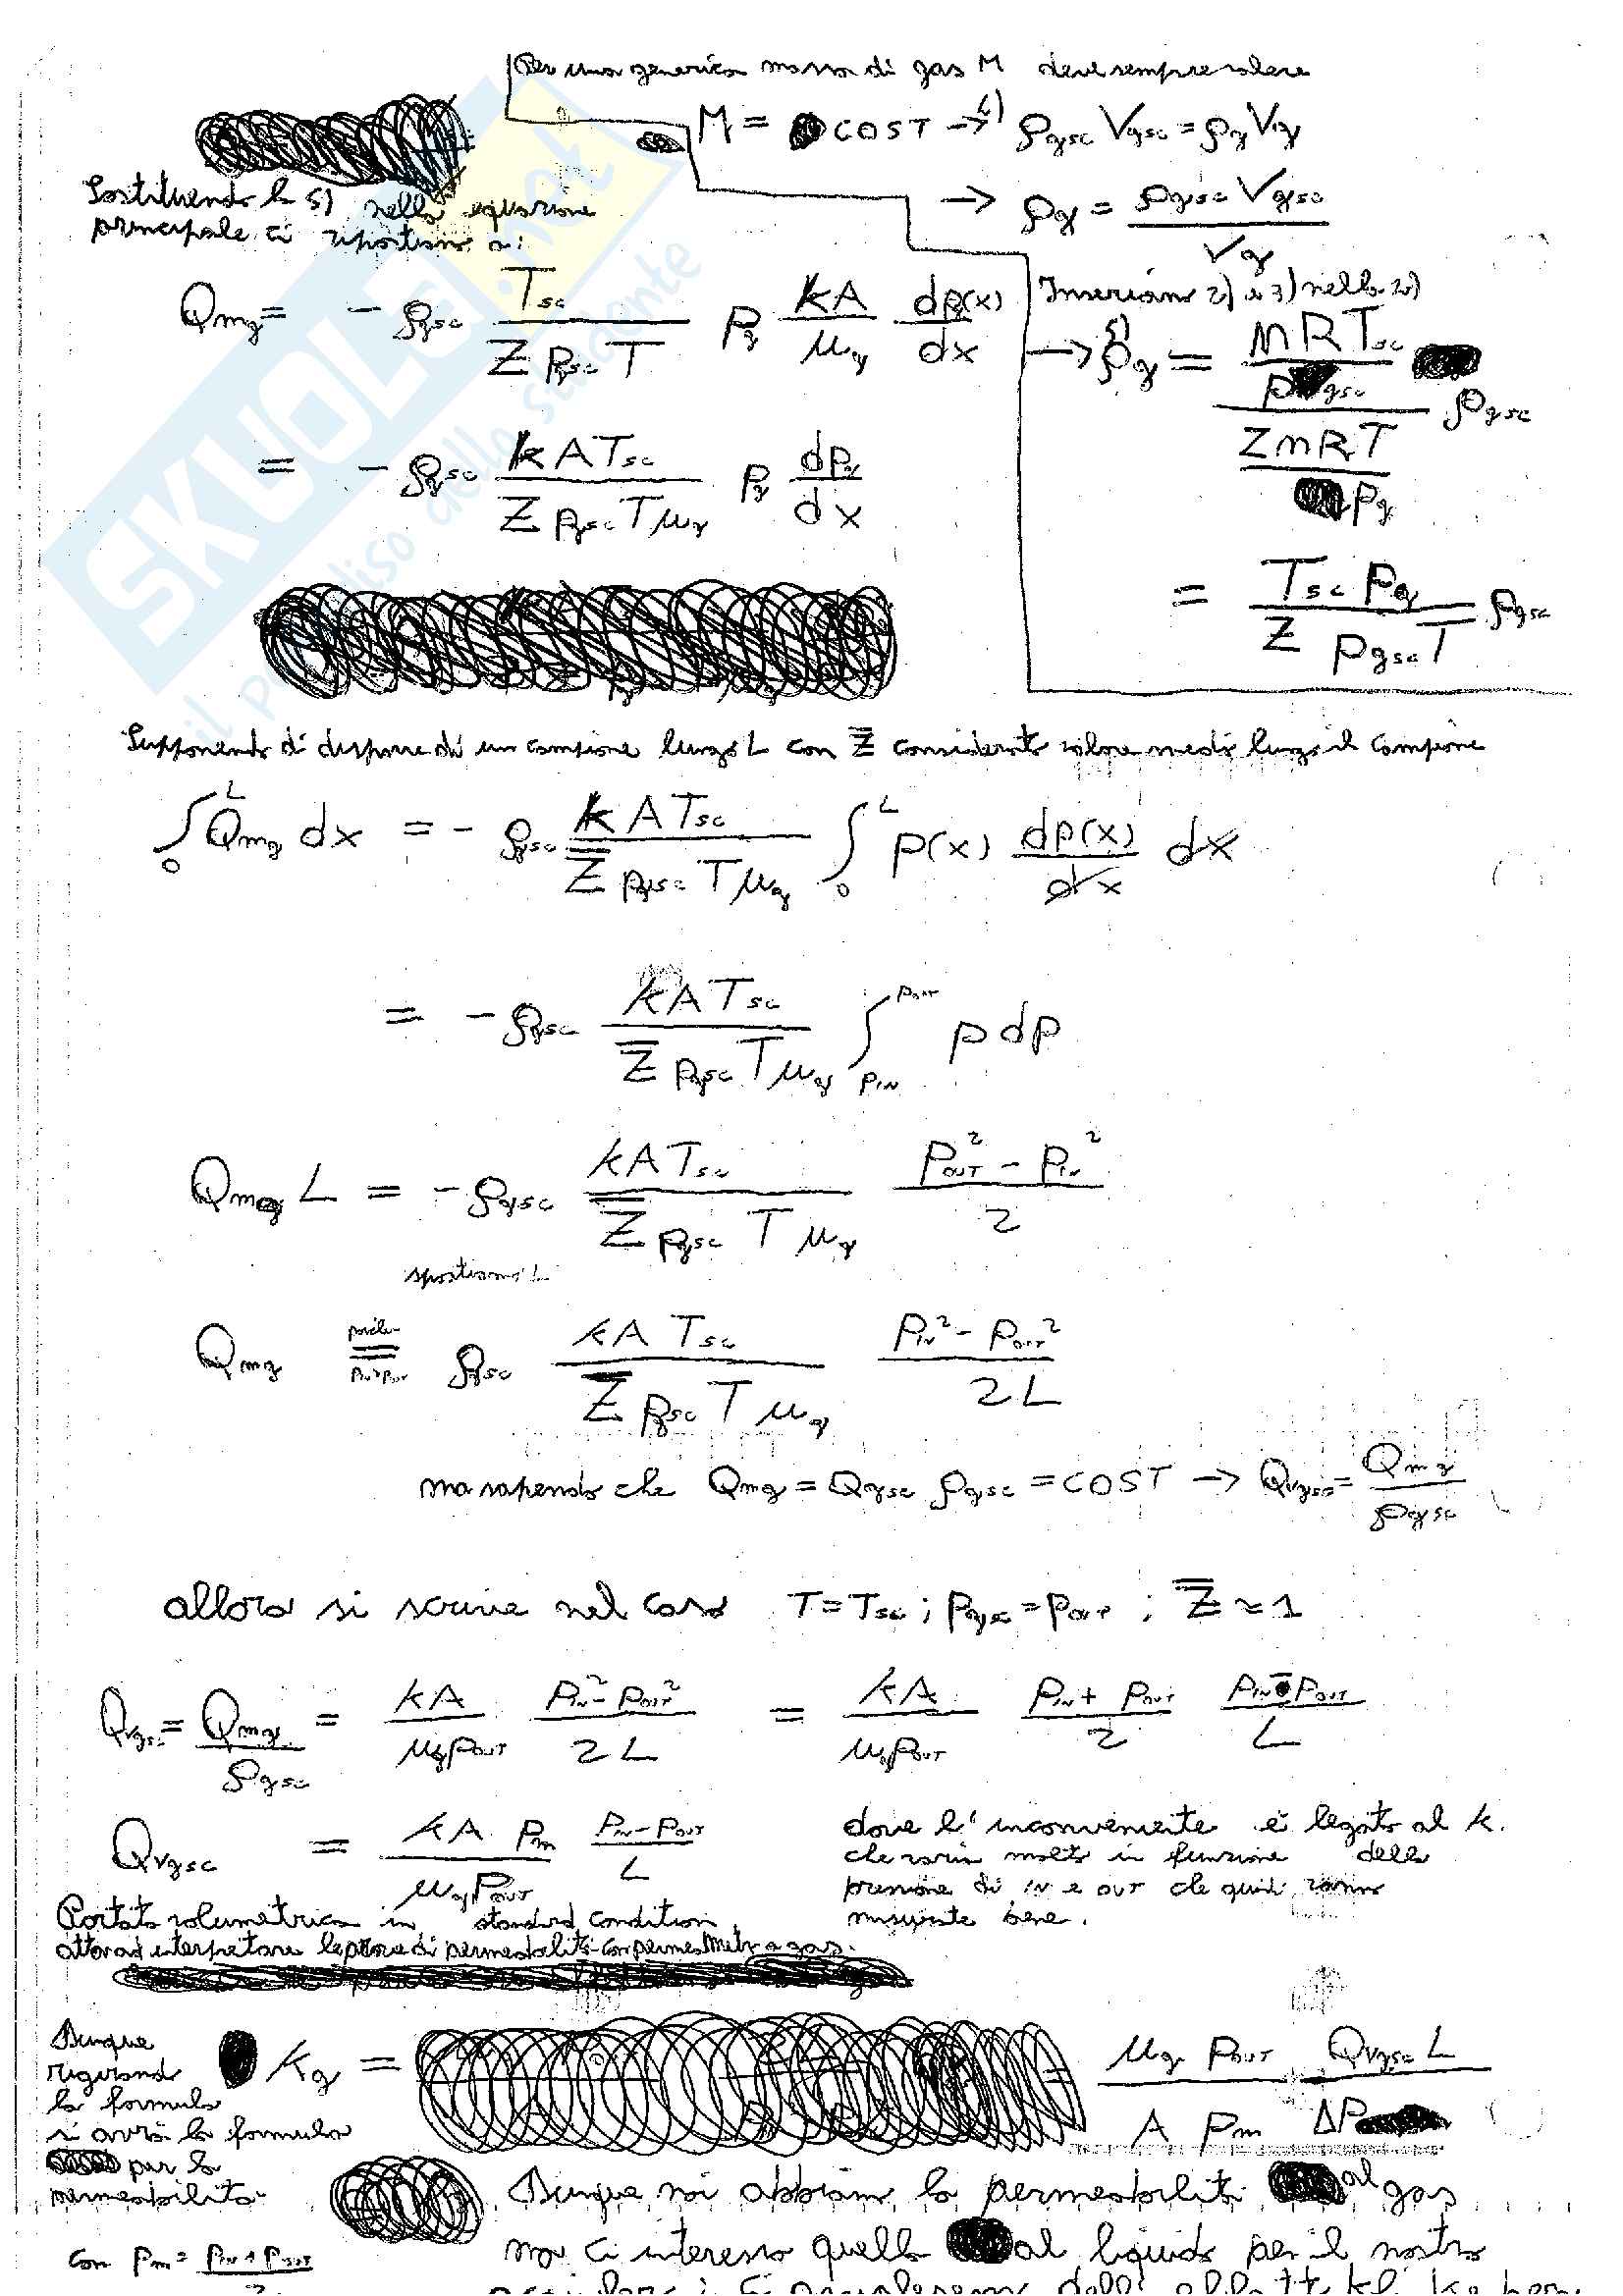 Per una generica massa di gas M deve sempre valere
M = COST → 4) ρgsc Vgsc = ρg Vg
→ ρg = ρgsc Vgsc / Vg
Inseriamo 2) e 3) nella
→ 5) ρg = (nRTsc / pgsc) / (ZnRT / pg) ρgsc
= Tsc pg / (Z pgsc T) ρgsc
Sostituendo la 5) nella equazione
principale ci riportiamo a:
Qmg = - ρgsc Tsc / (Z pgsc T) pg kA / μg dp(x) / dx
= - ρgsc kATsc / (Z pgsc T μg) pg dpg / dx
SKUOLA.net
il paradiso dello studente
Supponendo di disporre di un campione lungo L con Z̅ considerato valore medio lungo il campione
∫₀ᴸ Qmg dx = - ρgsc kATsc / (Z̅ pgsc T μg) ∫₀ᴸ p(x) dp(x) / dx dx
= - ρgsc kATsc / (Z̅ pgsc T μg) ∫ pIN pOUT p dp
Qmg L = - ρgsc kATsc / (Z̅ pgsc T μg) (pOUT² - pIN²) / 2
spostiamo L
Qmg = ρgsc kA Tsc / (Z̅ pgsc T μg) (pIN² - pOUT²) / 2L
ma sapendo che Qmg = Qgsc ρgsc = COST → Qvgsc = Qmg / ρgsc
allora si scrive nel caso T = Tsc ; pgsc = pOUT ; Z̅ ≈ 1
Qvgsc = Qmg / ρgsc = kA / (μg pOUT) (pIN² - pOUT²) / 2L = kA / (μg pOUT) (pIN + pOUT) / 2 (pIN - pOUT) / L
Qvgsc = kA pm / (μg pOUT) (pIN - pOUT) / L
dove l'inconveniente è legato al k.
che varia molto in funzione della
pressione di IN e OUT che quindi vanno
misurate bene.
Portata volumetrica in standard condition
di permeabilità con permeametro a gas.
Dunque
rigirando
la formula
si avrà la formula
per la
permeabilità
kg = μg pOUT Qvgsc L / (A pm ΔP)
con pm = pIN + pOUT / 2
Dunque noi abbiamo la permeabilità al gas
ma ci interessa quella al liquido per il nostro